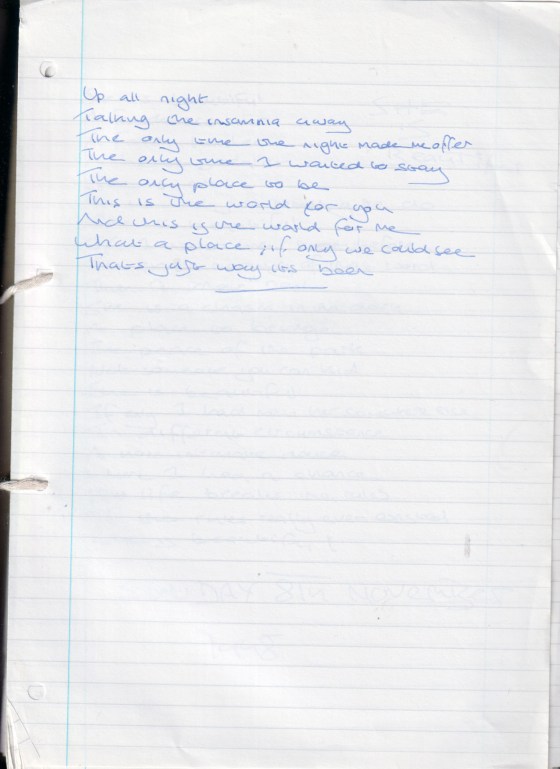 Up all night
Talking the insomnia away
The only time the night made me offer
The only time I wanted to stay
The only place to be
This is the world for you
And this is the world for me
What a place, if only we could see
Thats just way its been